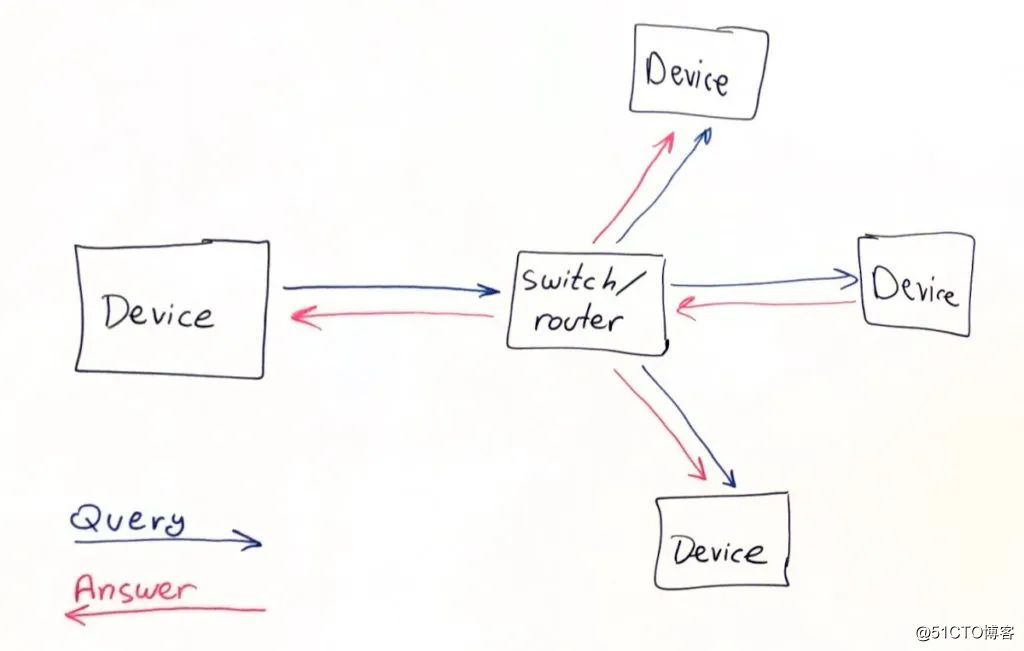 Device
Device
switch/
router
Device
Device
Query
Answer
@51CTO博客